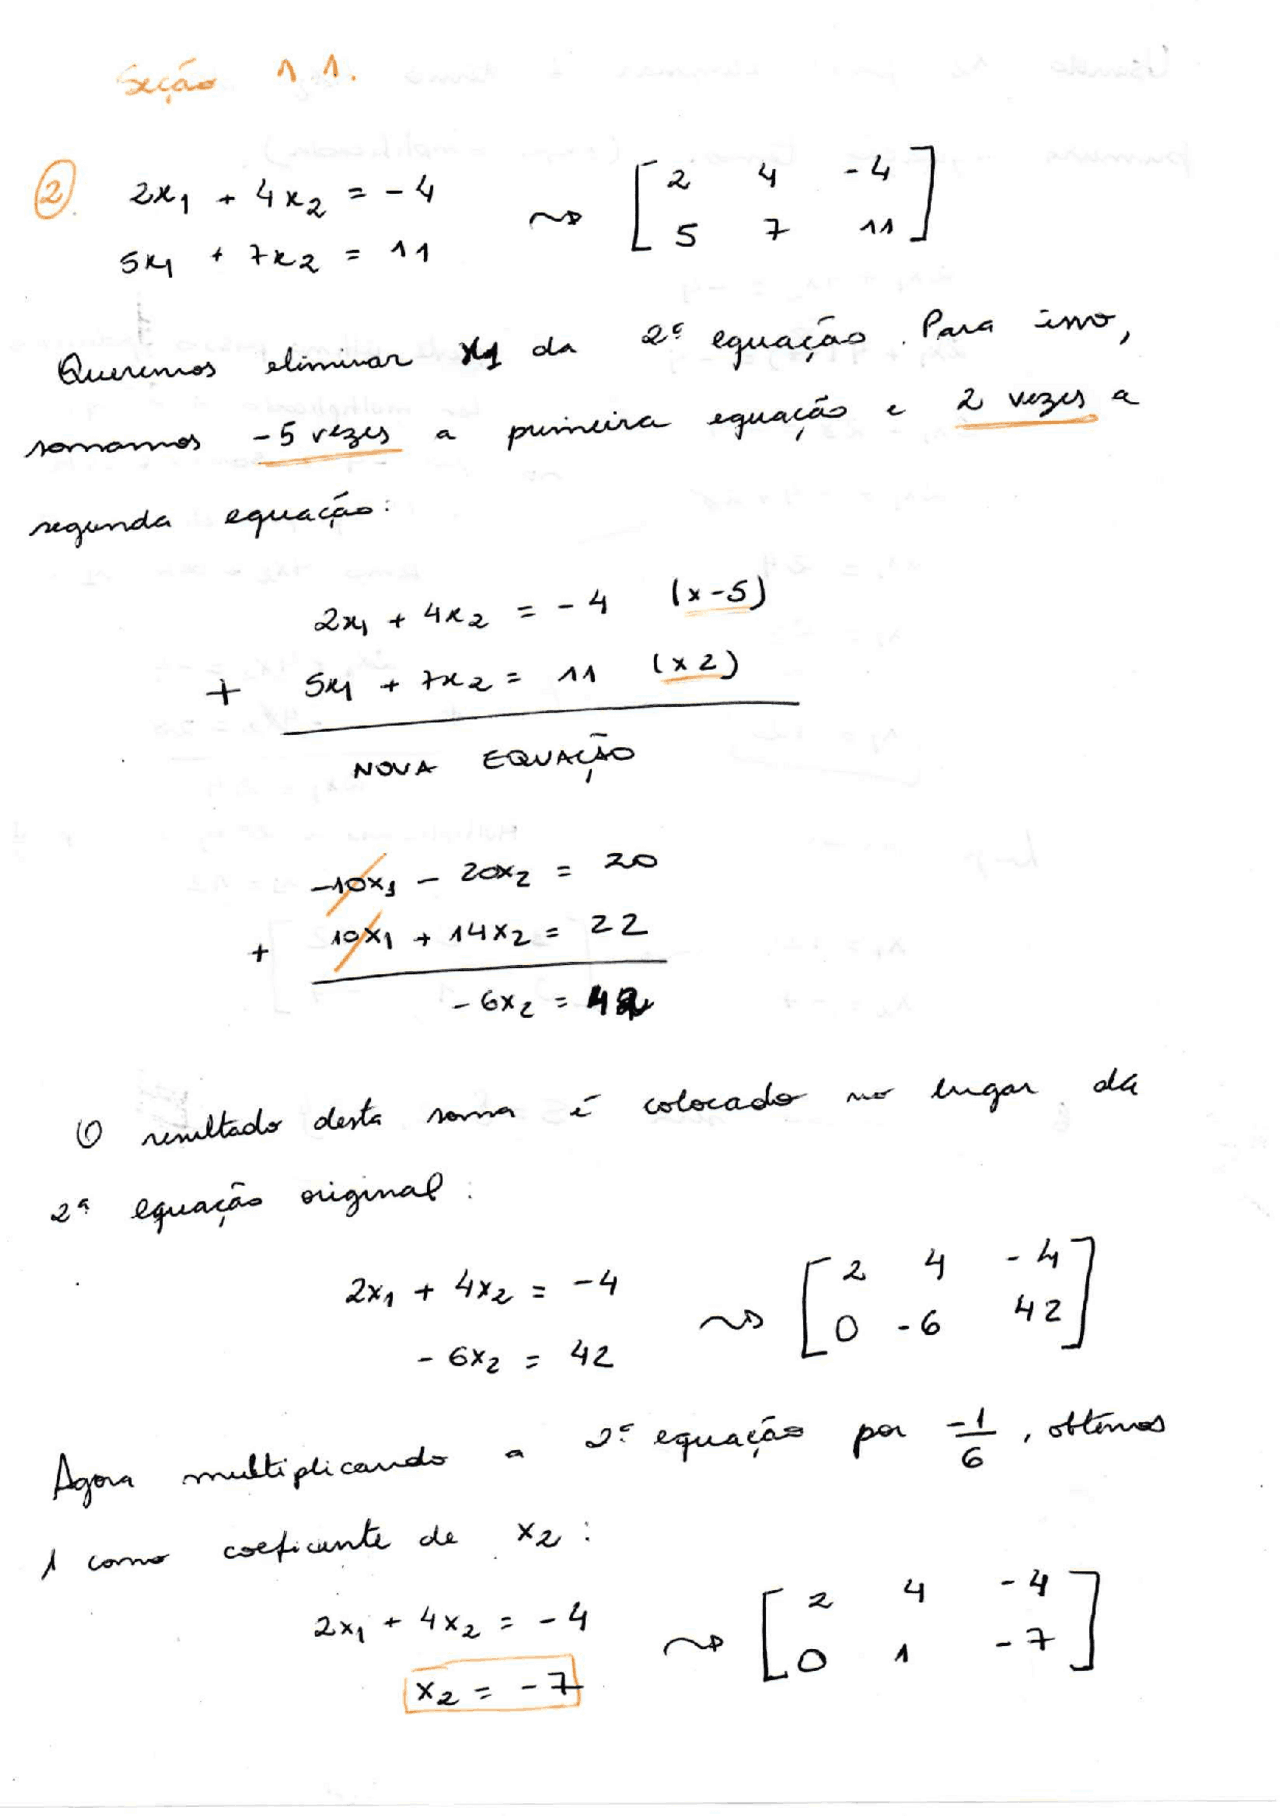 Seção 1.1.
② 2x₁ + 4x₂ = -4 ⇝ [ 2 4 -4
5x₁ + 7x₂ = 11 5 7 11 ]
Queremos eliminar x₁ da 2ª equação. Para isso,
somamos -5 vezes a primeira equação e 2 vezes a
segunda equação:
2x₁ + 4x₂ = -4 (x-5)
+ 5x₁ + 7x₂ = 11 (x2)
NOVA EQUAÇÃO
-10x₁ - 20x₂ = 20
+ 10x₁ + 14x₂ = 22
-6x₂ = 42
O resultado desta soma é colocado no lugar da
2ª equação original:
2x₁ + 4x₂ = -4 ⇝ [ 2 4 -4
-6x₂ = 42 0 -6 42 ]
Agora multiplicando a 2ª equação por -1/6, obtemos
1 como coeficiente de x₂:
2x₁ + 4x₂ = -4 ⇝ [ 2 4 -4
x₂ = -7 0 1 -7 ]